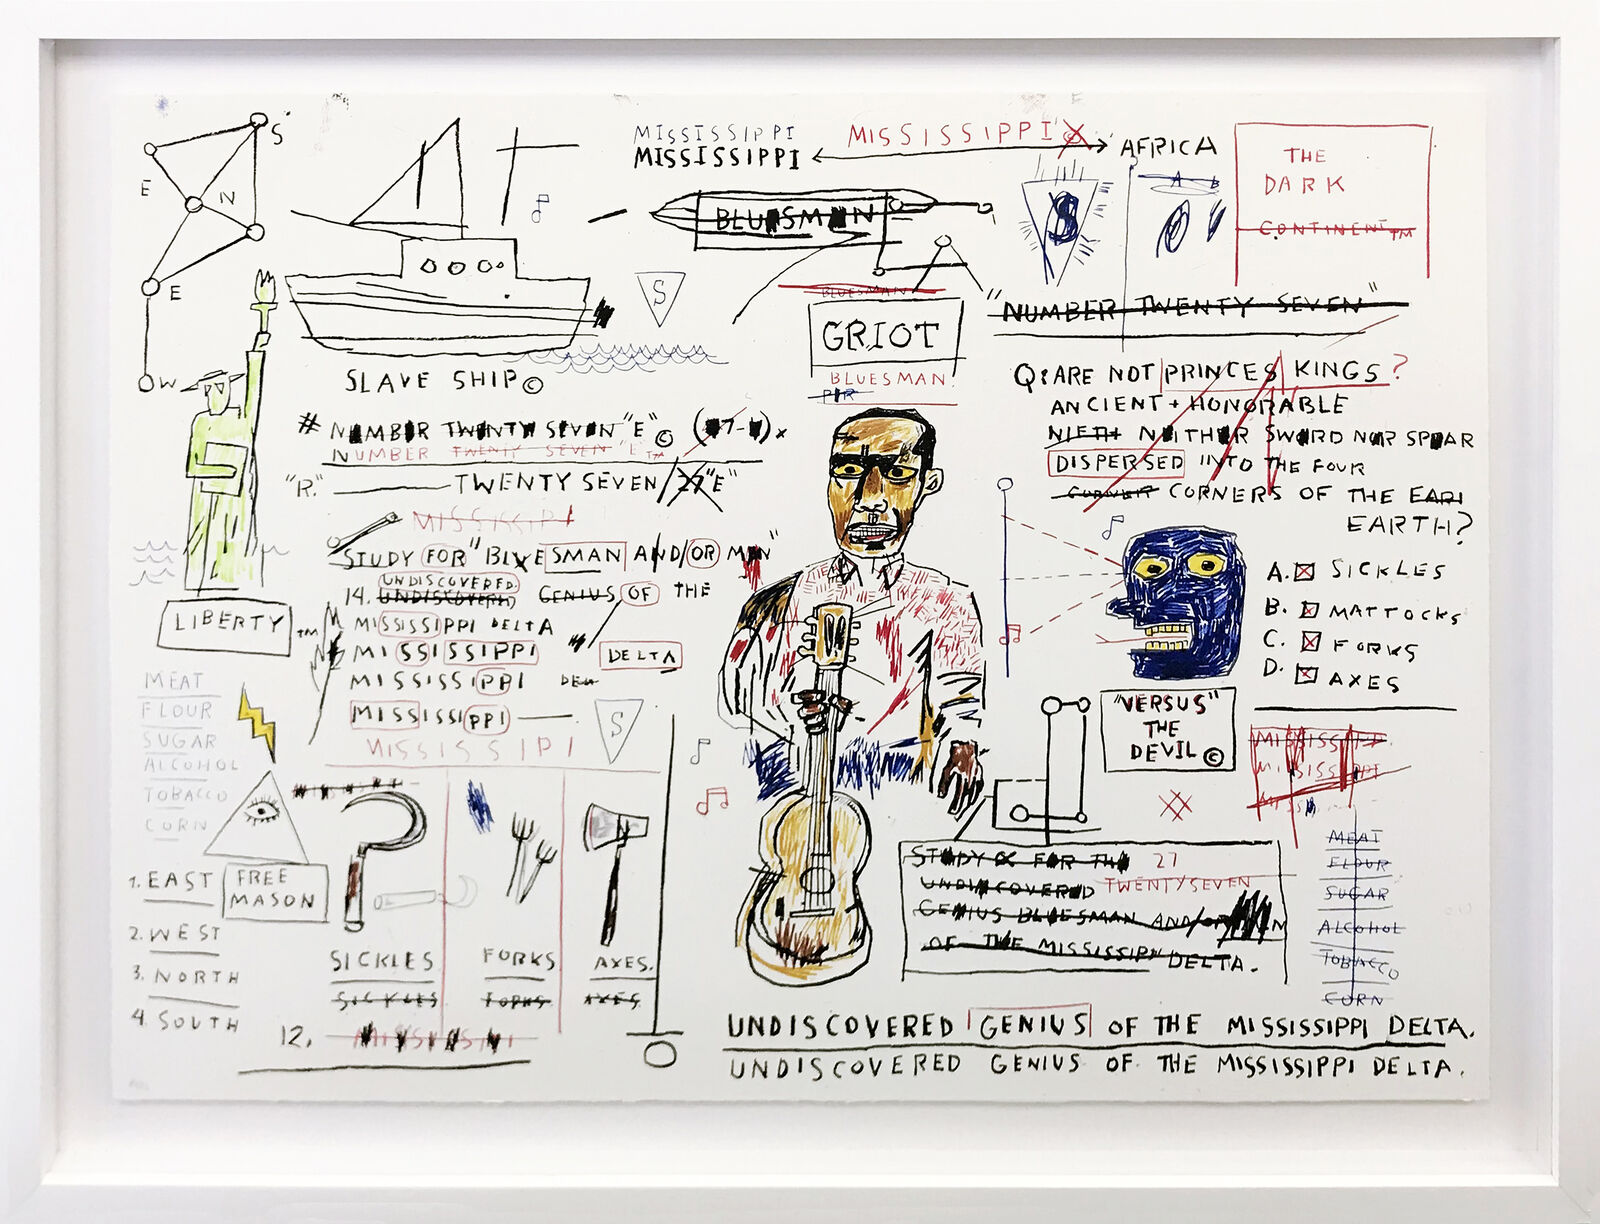 S
E
N
E
W
MISSISSIPPI
MISSISSIPPI
MISSISSIPPI
AFRICA
THE
DARK
CONTINENT TM
BLUESMAN
S
A B
S
BLUESMAN
GRIOT
BLUESMAN.
"NUMBER TWENTY SEVEN"
SLAVE SHIP ©
# NUMBER TWENTY SEVEN "E" ©
NUMBER TWENTY SEVEN "E" TM
"R." TWENTY SEVEN/27 "E"
Q: ARE NOT PRINCES KINGS?
ANCIENT + HONORABLE
NIETH NEITHER SWORD NOR SPEAR
DISPERSED INTO THE FOUR
CORNER CORNERS OF THE EARI
EARTH?
A. SICKLES
B. MATTOCKS
C. FORKS
D. AXES
MISSISSIPI
STUDY FOR "BLUESMAN AND/OR MAN"
UNDISCOVERED
14. UNDISCOVERED GENIUS OF THE
MISSISSIPPI DELTA
MISSISSIPPI DELTA
MISSISSIPPI
MISSISSIPPI
MISSISSIPI
S
LIBERTY TM
MEAT
FLOUR
SUGAR
ALCOHOL
TOBACCO
CORN
FREE
MASON
1. EAST
2. WEST
3. NORTH
4. SOUTH
SICKLES
SICKLES
FORKS
FORKS
AXES.
AXES
12.
"VERSUS"
THE
DEVIL ©
MISSISSIPPI
MISSISSIPPI
MEAT
FLOUR
SUGAR
ALCOHOL
TOBACCO
CORN
STUDY FOR THE 27
UNDISCOVERED TWENTYSEVEN
GENIUS BLUESMAN AND/OR MAN
OF THE MISSISSIPPI DELTA.
UNDISCOVERED GENIUS OF THE MISSISSIPPI DELTA.
UNDISCOVERED GENIUS OF THE MISSISSIPPI DELTA.